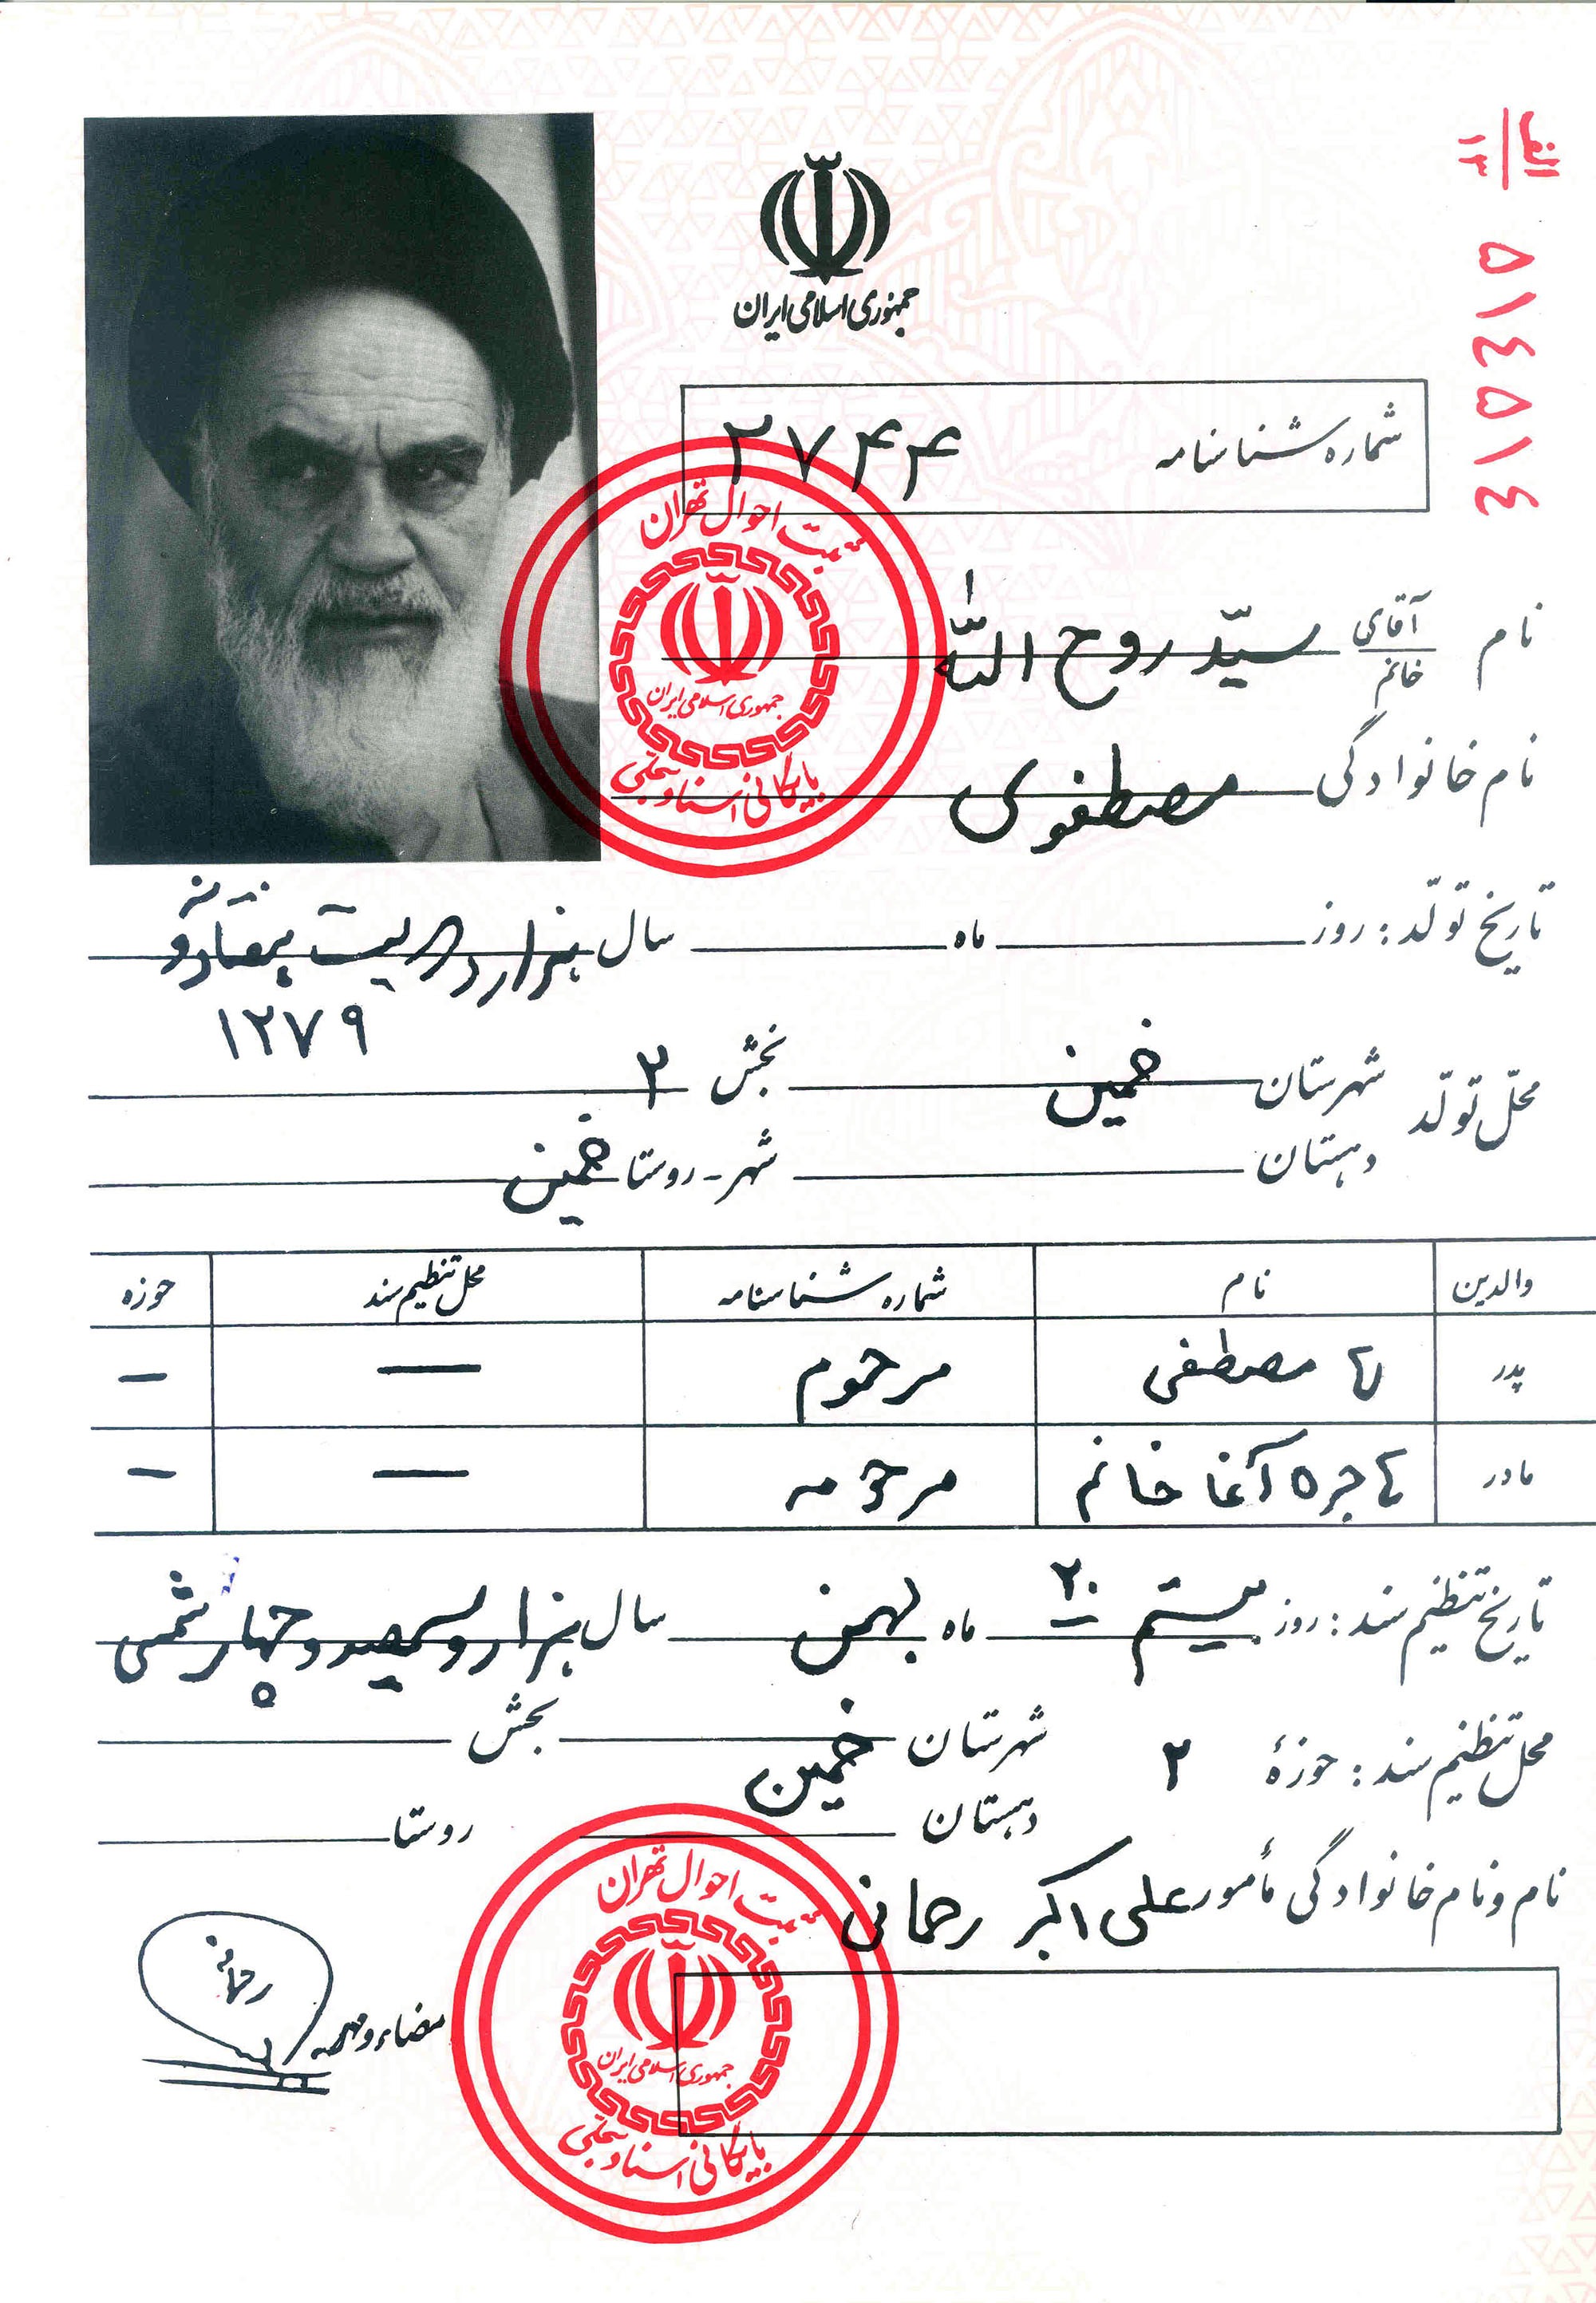 الف
۱۳
۵۱۴۵۱۴
جمهوری اسلامی ایران
شماره شناسنامه ۲۷۴۴
نام آقای خانم سیّد روح اللّٰه
نام خانوادگی مصطفوی
ثبت احوال تهران
جمهوری اسلامی ایران
بایگانی اسناد سجلی
تاریخ تولّد: روز ماه سال هزار و دویست هفتاد و نه
۱۲۷۹
محلّ تولّد شهرستان خمین بخش ۲
دهستان شهر-روستا خمین
والدین نام شماره شناسنامه محل تنظیم سند حوزه
پدر مصطفی مرحوم — —
مادر هاجره آغا خانم مرحومه — —
تاریخ تنظیم سند: روز بیستم ۲۰ ماه بهمن سال هزار و سیصد و چهار شمسی
محل تنظیم سند: حوزهٔ ۲ شهرستان خمین بخش
دهستان روستا
نام و نام خانوادگی مأمور علی اکبر رحمانی
ثبت احوال تهران
جمهوری اسلامی ایران
بایگانی اسناد سجلی